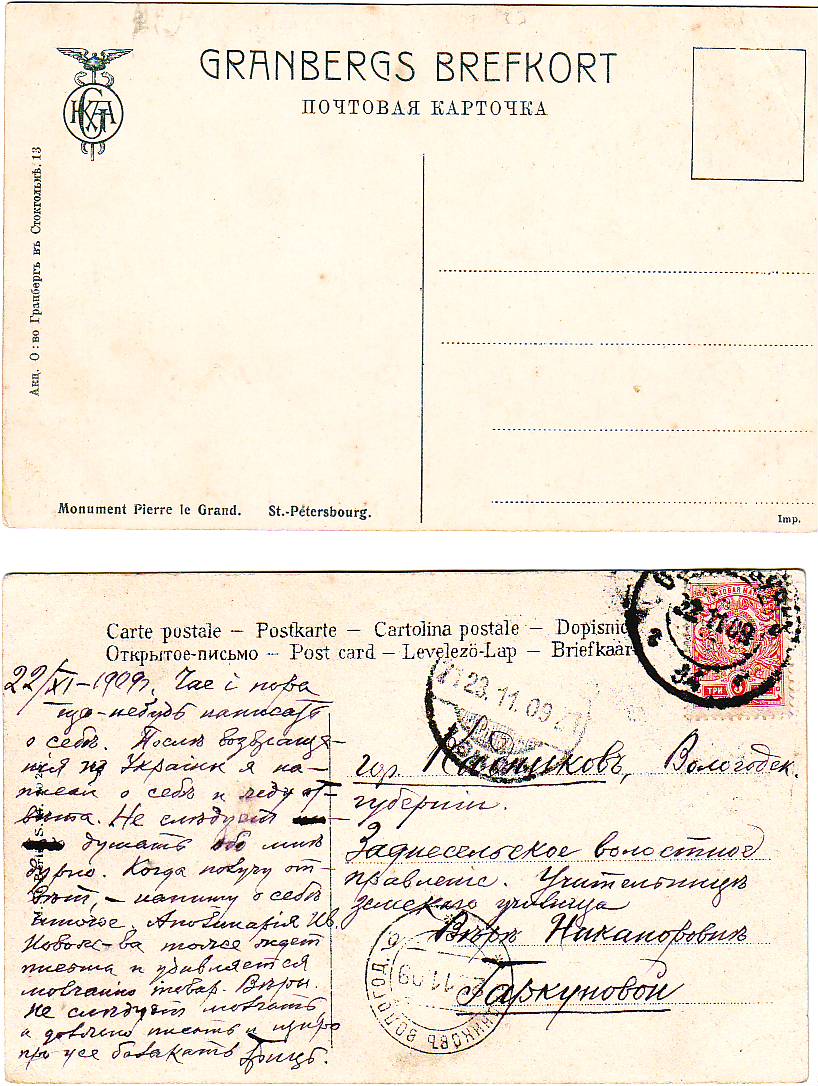 GRANBERGS BREFKORT
ПОЧТОВАЯ КАРТОЧКА
Акц. О:во Гранбергъ въ Стокгольмѣ. 13
Monument Pierre le Grand. St.-Pétersbourg.
Imp.
Carte postale – Postkarte – Cartolina postale – Dopisnic
Открытое-письмо – Post card – Levelezö-Lap – Briefkaar
22/XI-1909г. Час і пора
що-небудь написать
о себѣ. Послѣ возвраще-
нія из Украіни я на-
писал о себѣ и жду от-
вѣта. Не слѣдует
думать обо мнѣ
дурно. Когда получу от-
вѣт, – напишу о себѣ
многое. Аполинарія Ив.
тоже ждет
письма и удивляется
молчанію товар. Вѣры.
Не слѣдует молчать
а должно писать и щиро
про усе балакать
гор. Кадниковъ, Вологодск.
губерніи.
Заднесельское волостное
правленіе. Учительницѣ
земскаго училища
Вѣрѣ Никаноровнѣ
Таркуновой
22 11 09
ТРИ 3
23.11.09
КАДНИКОВЪ ВОЛОГОД. Г.
11.09